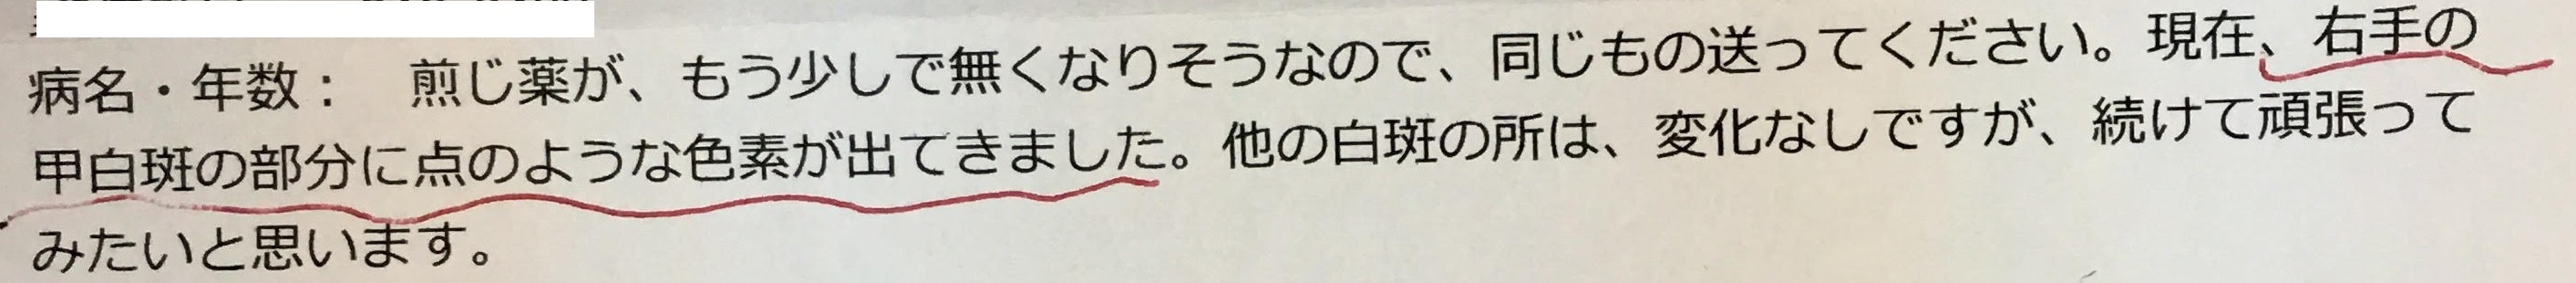 病名・年数： 煎じ薬が、もう少しで無くなりそうなので、同じもの送ってください。現在、右手の
甲白斑の部分に点のような色素が出てきました。他の白斑の所は、変化なしですが、続けて頑張って
みたいと思います。